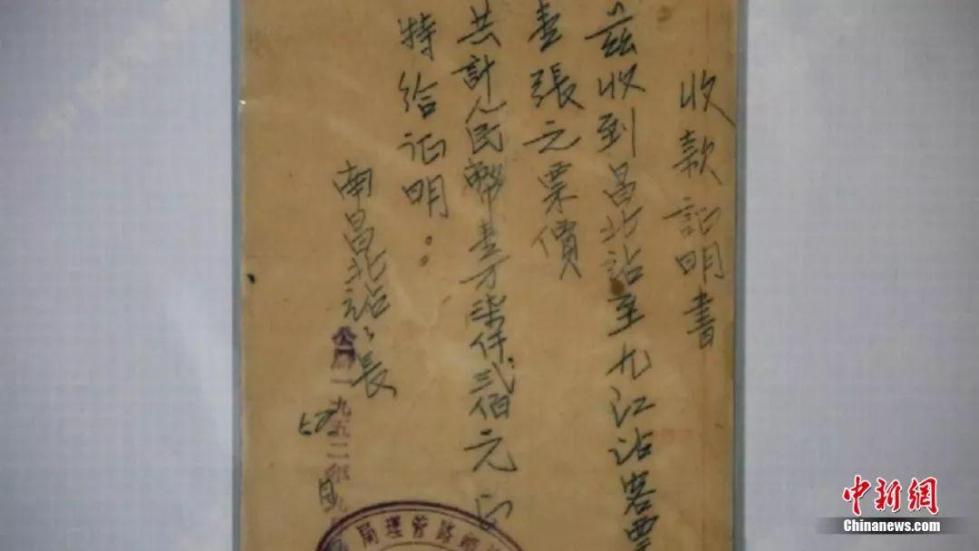 收款証明書
茲收到昌北站至九江站客票
壹張之票價
共計人民幣壹万柒仟貳佰元正
特給证明。
南昌北站站長
公曆一九五二年
路管理局
中新網
Chinanews.com